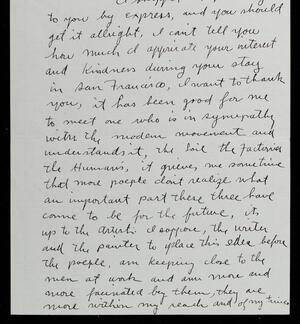 I shipped
to you by express, and you should
get it allright, I can't tell you
how much I appriciate your interest
and Kindness during your stay
in San Francisco, I want to thank
you, it has been good for me
to meet one who is in sympathy
with the modern movement and
understands it, The Soil the Factories
the Humans, it grieves me sometime
that more poeple dont realize what
an important part these three have
come to be for the future, its
up to the Artist I suppose, the writer
and the painter to place this idea before
the poeple, am keeping close to the
men at work and am more and
more facinated by them, they are
more within my reach and of my times